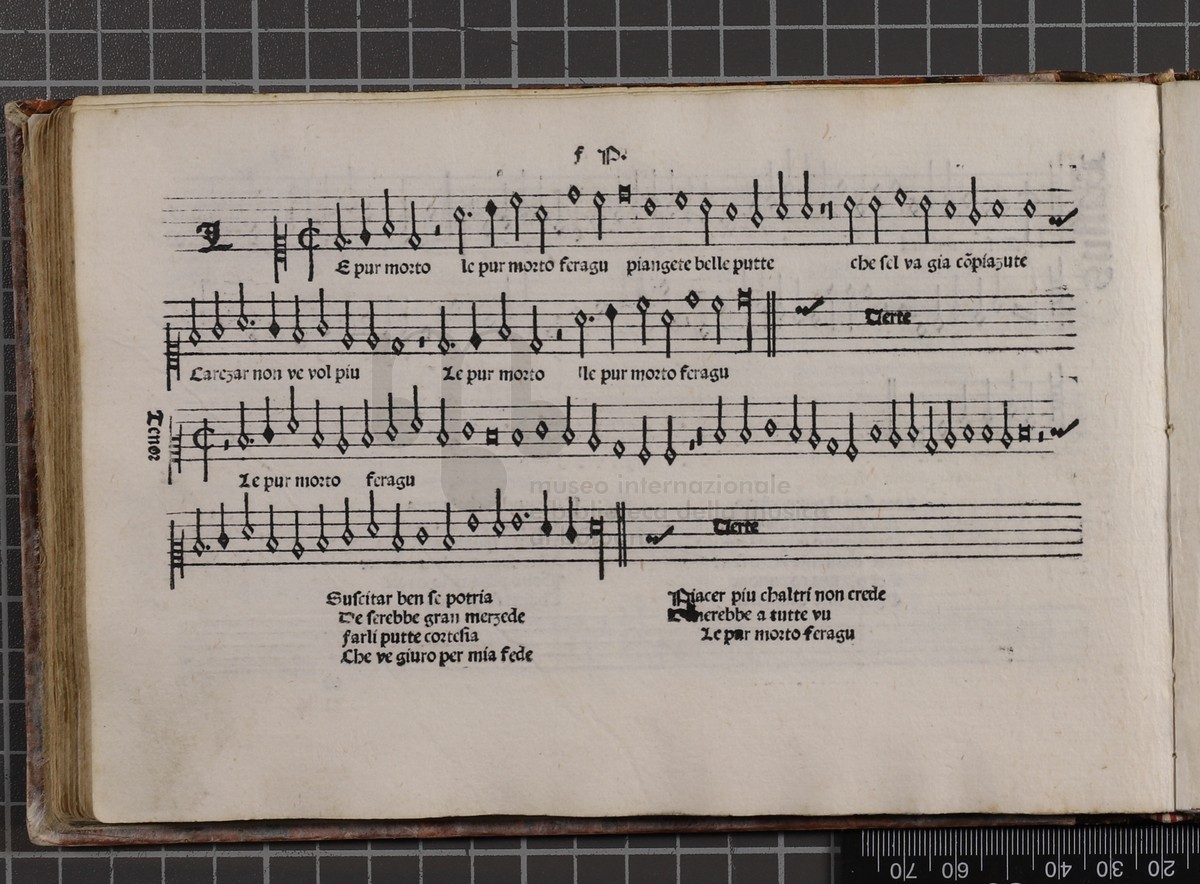 f P.
L
E pur morto le pur morto feragu piangete belle putte che sel va gia cõpiazute
Carezar non ve vol piu Le pur morto le pur morto feragu
Uerte
Tenor
Le pur morto feragu
Uerte
Suscitar ben se potria
De serebbe gran merzede
Farli putte cortesia
Che ve giuro per mia fede
Piacer piu chaltri non crede
nerebbe a tutte vu
Le pur morto feragu
museo internazionale
e biblioteca della musica
70 60 40 30 20